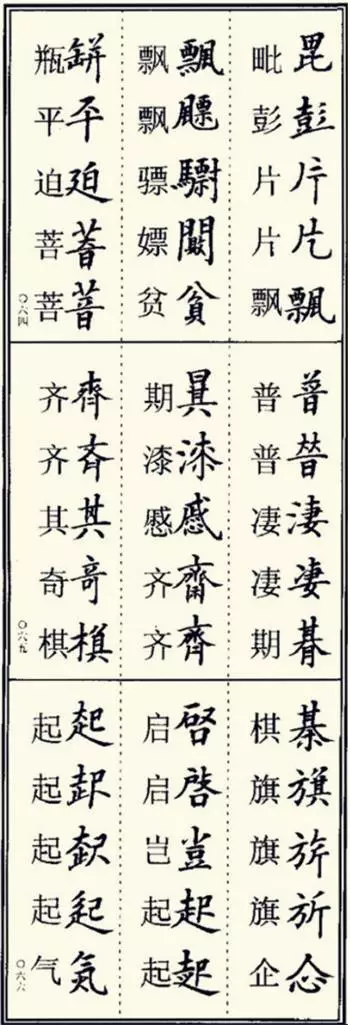 毘彭片片飄
毗彭片片飘
飄闝貧
飘飘骠嫖贫
缾平廹
瓶平迫菩菩
〇六四
普暜淒凄朞
普普凄凄期
慼齊
期漆慼齐齐
齊斉其竒
齐齐其奇棋
〇六五
棊旗
棋旗旗旗企
啓豈起起
启启岂起起
起起氣
起起起起气
〇六六